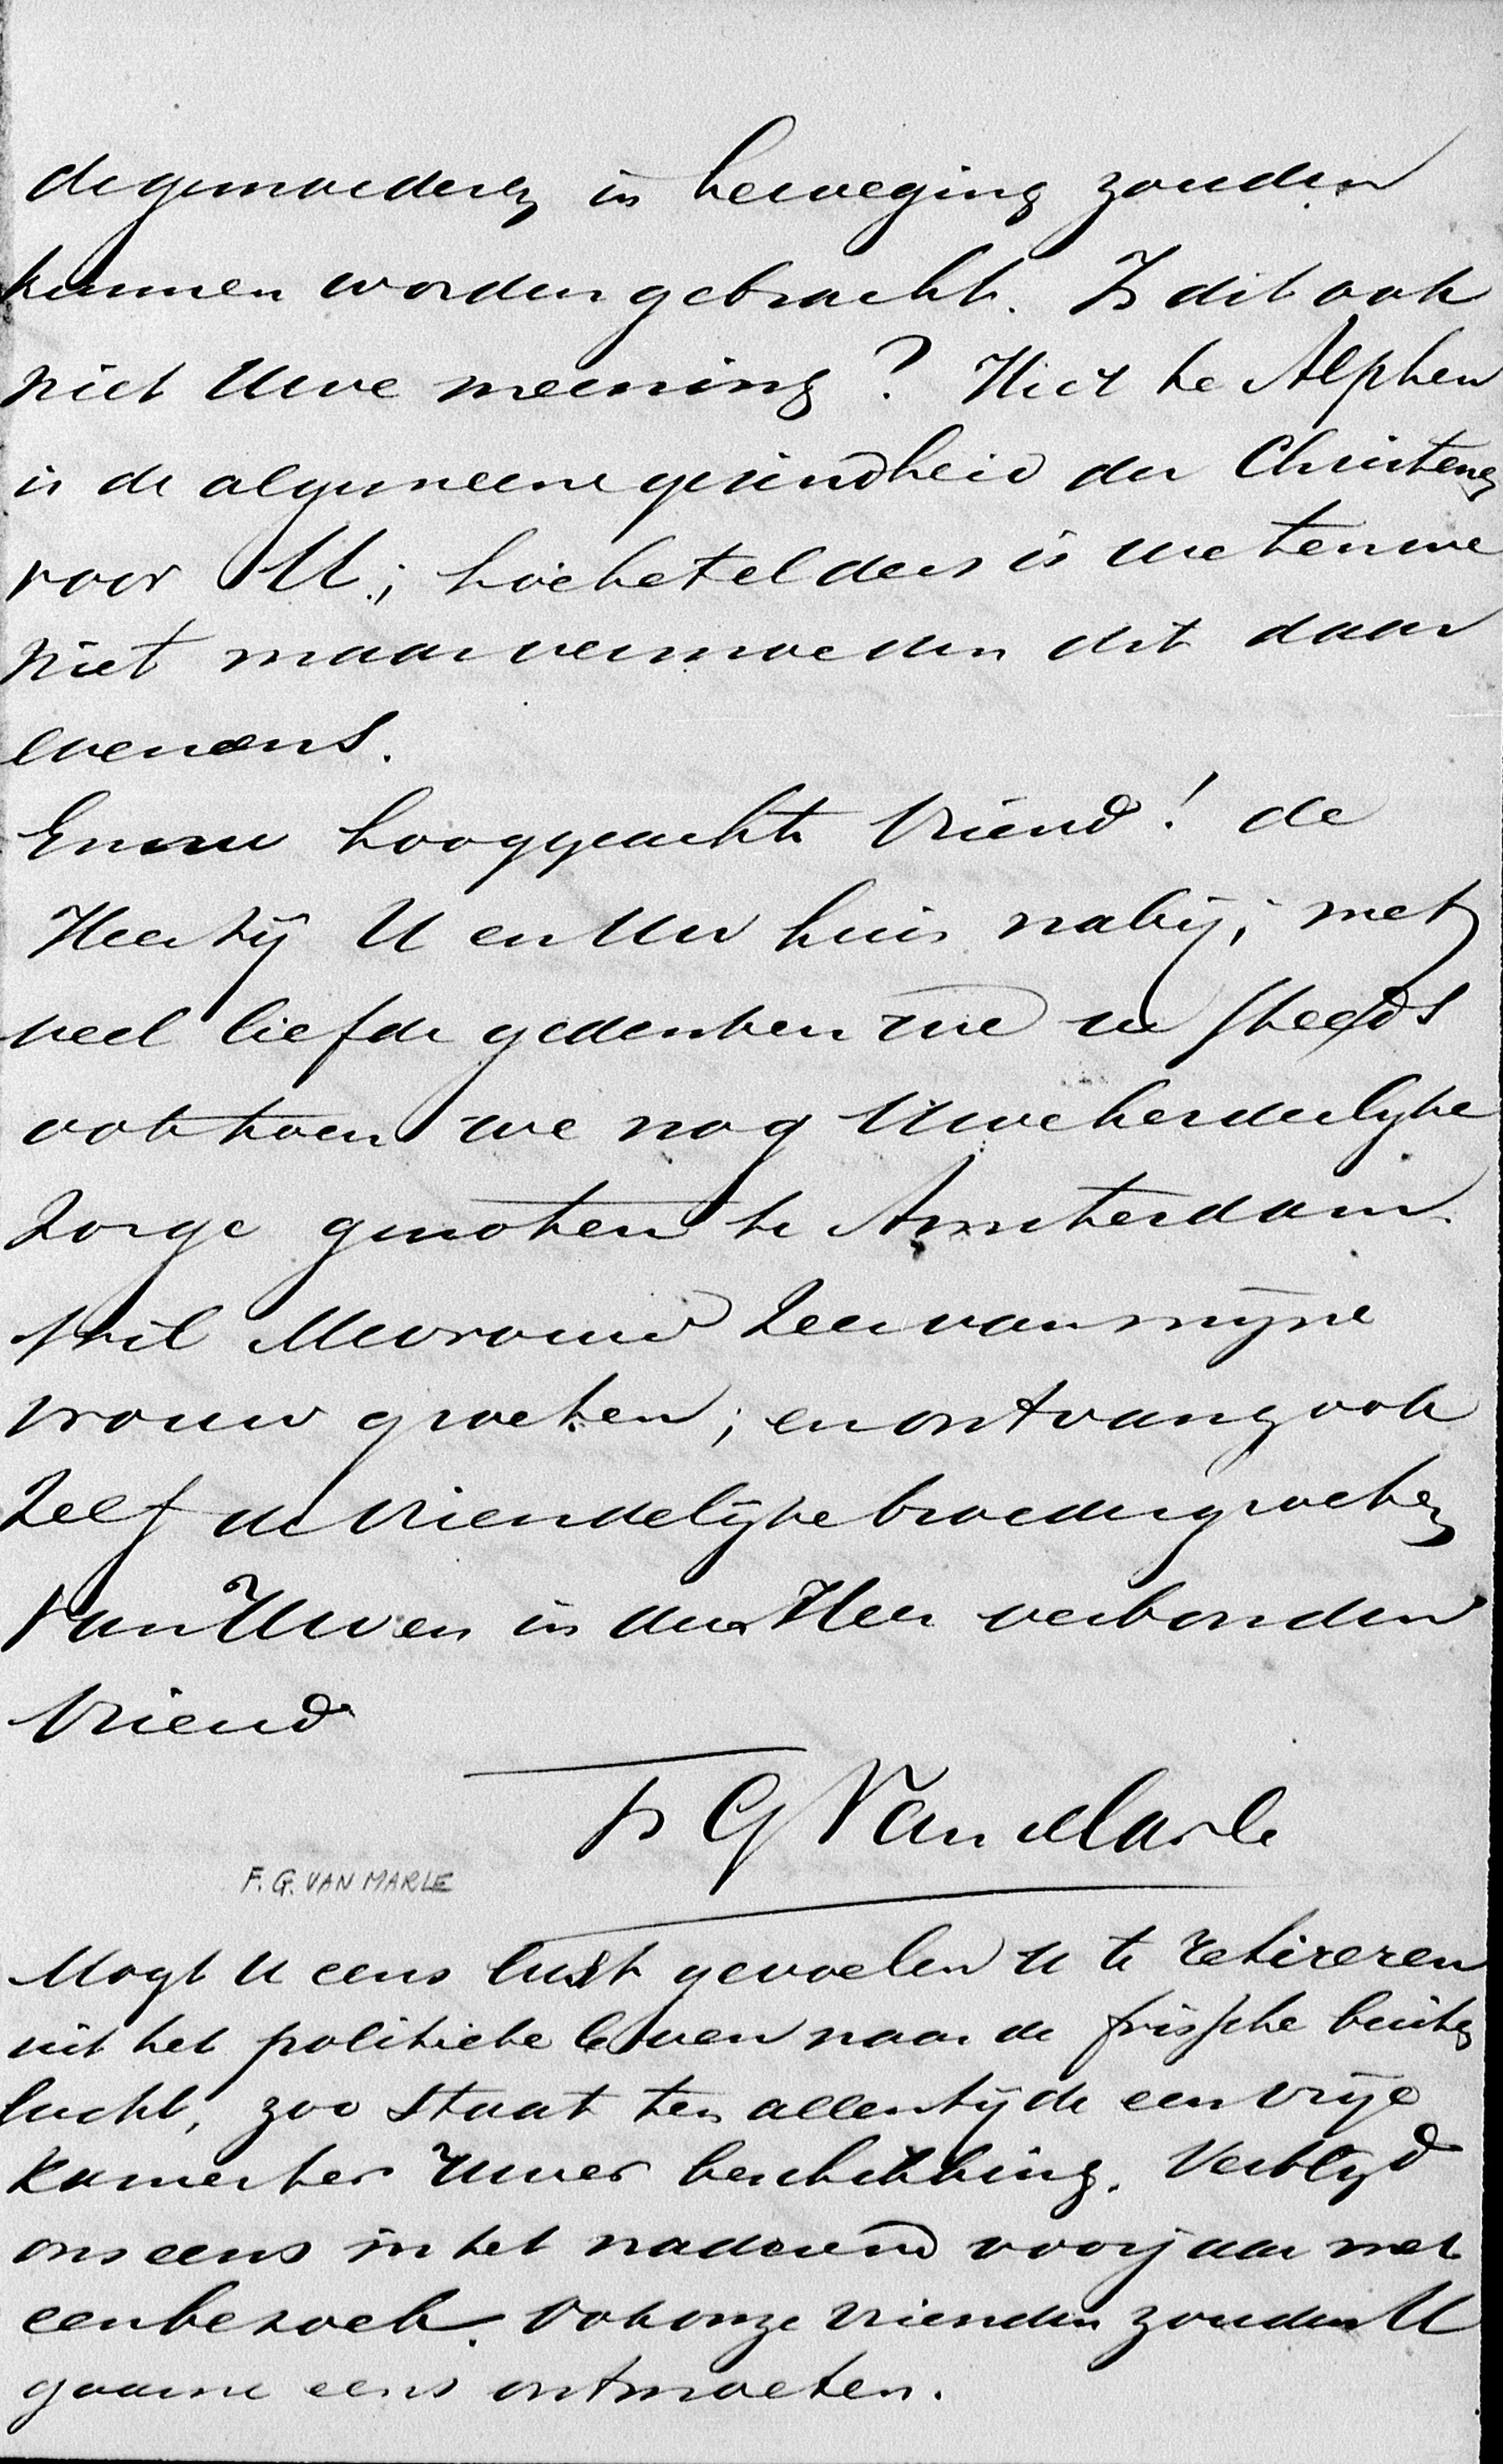 de gemoederen in beweging zouden
kunnen worden gebracht. Is dit ook
niet Uwe meening? Hier te Alphen
is de algemeene gezindheid der Christenen
voor U; hoe het elders is weten we
niet maar vermoeden dit daar
eveneens.
En nu hooggeachte Vriend! de
Heer zij U en Uw huis nabij; met
veel liefde gedenken we U steeds
ook toen we nog Uwe herderlijke
zorge genoten te Amsterdam.
Wil Mevrouw zeer van mijne
vrouw groeten; en ontvang ook
zelf de vriendelijke broedergroeten
van Uwen in den Heer verbonden
Vriend
F G Van Marle
F. G. VAN MARLE
Mogt U eens lust gevoelen U te retireren
uit het politieke leven naar de frissche buiten
lucht, zoo staat ten allen tijde een vrije
kamer ter Uwer beschikking. Verblyd
ons eens in het naderend voorjaar met
een bezoek. Ook onze vrienden zouden U
gaarne eens ontmoeten.